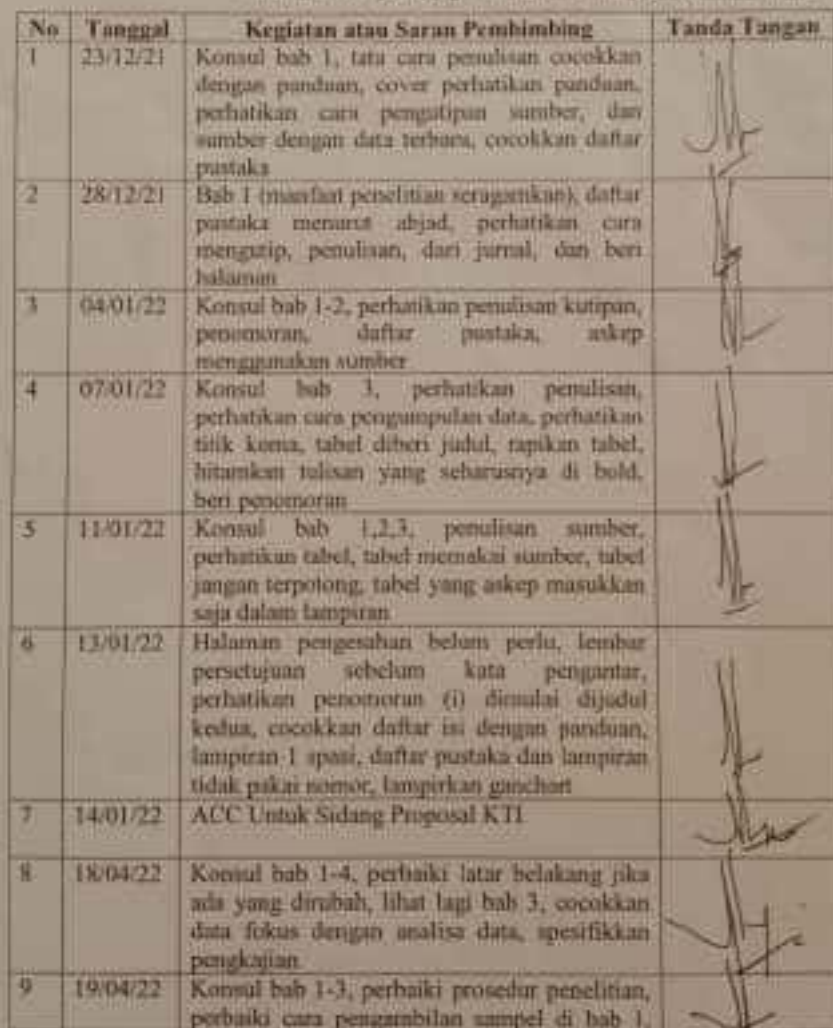 No Tanggal Kegiatan atau Saran Pembimbing Tanda Tangan
1 23/12/21 Konsul bab 1, tata cara penulisan cocokkan
dengan panduan, cover perhatikan panduan,
perhatikan cara pengutipan sumber, dan
sumber dengan data terbaru, cocokkan daftar
pustaka
2 28/12/21 Bab 1 (manfaat penelitian seragamkan), daftar
pustaka menurut abjad, perhatikan cara
mengutip, penulisan, dari jurnal, dan beri
halaman
3 04/01/22 Konsul bab 1-2, perhatikan penulisan kutipan,
penomoran, daftar pustaka, askep
menggunakan sumber
4 07/01/22 Konsul bab 3, perhatikan penulisan,
perhatikan cara pengumpulan data, perhatikan
titik koma, tabel diberi judul, rapikan tabel,
hitamkan tulisan yang seharusnya di bold,
beri penomoran
5 11/01/22 Konsul bab 1,2,3, penulisan sumber,
perhatikan tabel, tabel memakai sumber, tabel
jangan terpotong, tabel yang askep masukkan
saja dalam lampiran
6 13/01/22 Halaman pengesahan belum perlu, lembar
persetujuan sebelum kata pengantar,
perhatikan penomoran (i) dimulai dijudul
kedua, cocokkan daftar isi dengan panduan,
lampiran 1 spasi, daftar pustaka dan lampiran
tidak pakai nomor, lampirkan ganchart
7 14/01/22 ACC Untuk Sidang Proposal KTI
8 18/04/22 Konsul bab 1-4, perbaiki latar belakang jika
ada yang dirubah, lihat lagi bab 3, cocokkan
data fokus dengan analisa data, spesifikkan
pengkajian
9 19/04/22 Konsul bab 1-3, perbaiki prosedur penelitian,
perbaiki cara pengambilan sampel di bab 1,